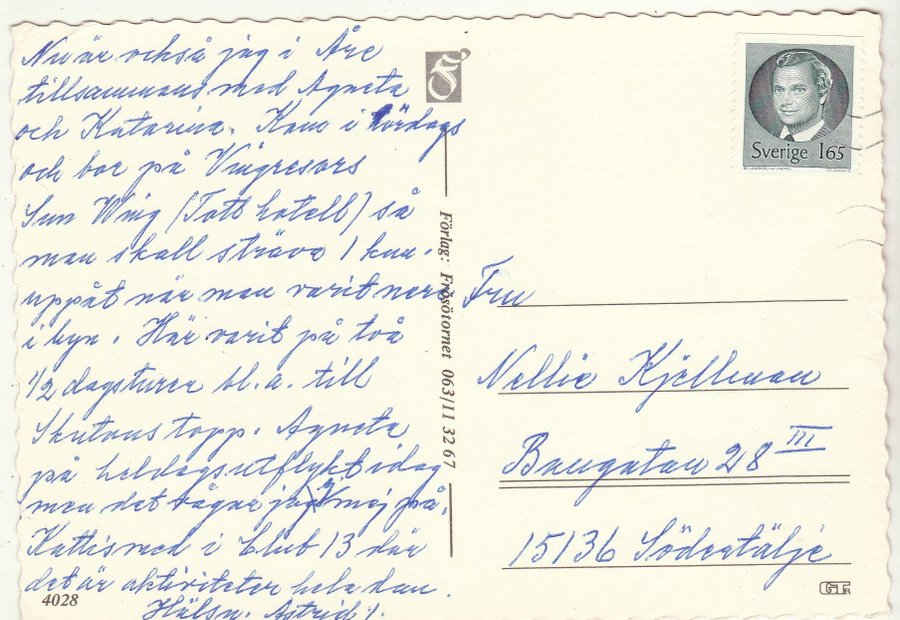 Nu är också jag i Åre
tillsammans med Agneta
och Katarina. Kom i lördags
och bor på Vingresors
Sun Wing (Tott hotell) så
man skall sträva 1 km.
uppåt när man varit nere
i byn. Har varit på två
1/2 dagsturer bl.a. till
Skutans topp. Agneta
på heldagsutflykt idag
men det vågar jag ej mej på.
Kattis med i Club 13 där
det är aktiviteter hela dan.
Hälsn. Astrid
4028
Förlag: Frösötornet 063/11 32 67
Sverige 165
Fru
Nellie Kjellman
Bangatan 28 III
15136 Södertälje